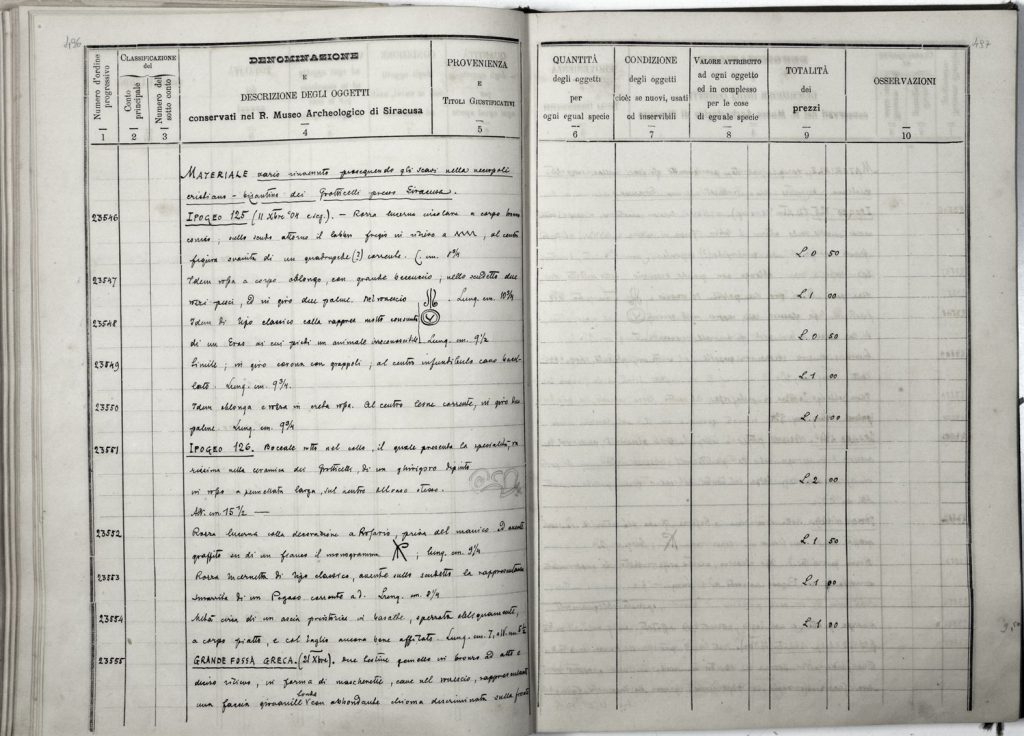 496
Numero d'ordine progressivo
CLASSIFICAZIONE del
Conto principale
Numero del sotto conto
DENOMINAZIONE
E
DESCRIZIONE DEGLI OGGETTI
conservati nel R. Museo Archeologico di Siracusa
PROVENIENZA
E
TITOLI GIUSTIFICATIVI
1 2 3 4 5
MATERIALE vario rinvenuto proseguendo gli scavi nella necropoli
cristiano-bizantina dei Grotticelli presso Siracusa.
23546 IPOGEO 125 (11 Xbre '08 e seg.). - Rozza lucerna circolare a corpo
conico; nello scudo attorno il labbro fregio in rilievo a, al centro
figura svanita di un quadrupede (?) corrente. C. m. 8¾
23547 Idem rossa a corpo oblongo, con grande beccuccio; nello scudetto due
rozzi pesci, ed in giro due palme. Nel rovescio . Lung. cm. 10¾
23548 Idem di tipo classico colla rappres. molto consunta
di un Eros ai cui piedi un animale irriconoscibile. Lung. cm. 9½
23549 Simile; in giro corona con grappoli; al centro infundibulo
Lung. cm. 9¾.
23550 Idem oblonga e rozza in creta rossa. Al centro leone corrente, in giro due
palme. Lung. cm. 9¾
23551 IPOGEO 126. Boccale rotto nel collo, il quale presenta la specialità, ra
rissima nella ceramica dei Grotticelli, di un ghirigoro dipinto
in rosso a pennellata larga, sul ventro
Alt. cm 15½ —
23552 Rozza lucerna colla decorazione a Rosario, priva del manico ed avente
graffito su di un fianco il monogramma ; lung. cm. 9¼
23553 Rozza lucernetta di tipo classico, avente sullo scudetto la rappresentanza
smarrita di un Pegaso corrente a d. Lung. cm. 8¼
23554 Metà circa di un ascia preistorica di basalte, spezzata obliquamente,
a corpo piatto, e col taglio ancora bene affilato. Lung. cm. 7,
23555 GRANDE FOSSA GRECA. (21 Xbre). Due testine gemelle in bronzo ad alto e
deciso rilievo, in forma di mascherette, cave nel rovescio, rappresentanti
una faccia giovanile tonda con abbondante chioma discriminata sulla fronte
497
QUANTITÀ
degli oggetti
per
ogni egual specie
CONDIZIONE
degli oggetti
cioè: se nuovi, usati
od inservibili
VALORE ATTRIBUITO
ad ogni oggetto
ed in complesso
per le cose
di eguale specie
TOTALITÀ
dei
prezzi
OSSERVAZIONI
6 7 8 9 10
L. 0 50
L. 1 00
L. 0 50
L. 1 00
L. 1 00
L. 2 00
L. 1 50
L. 1 00
L. 1 00
9,50